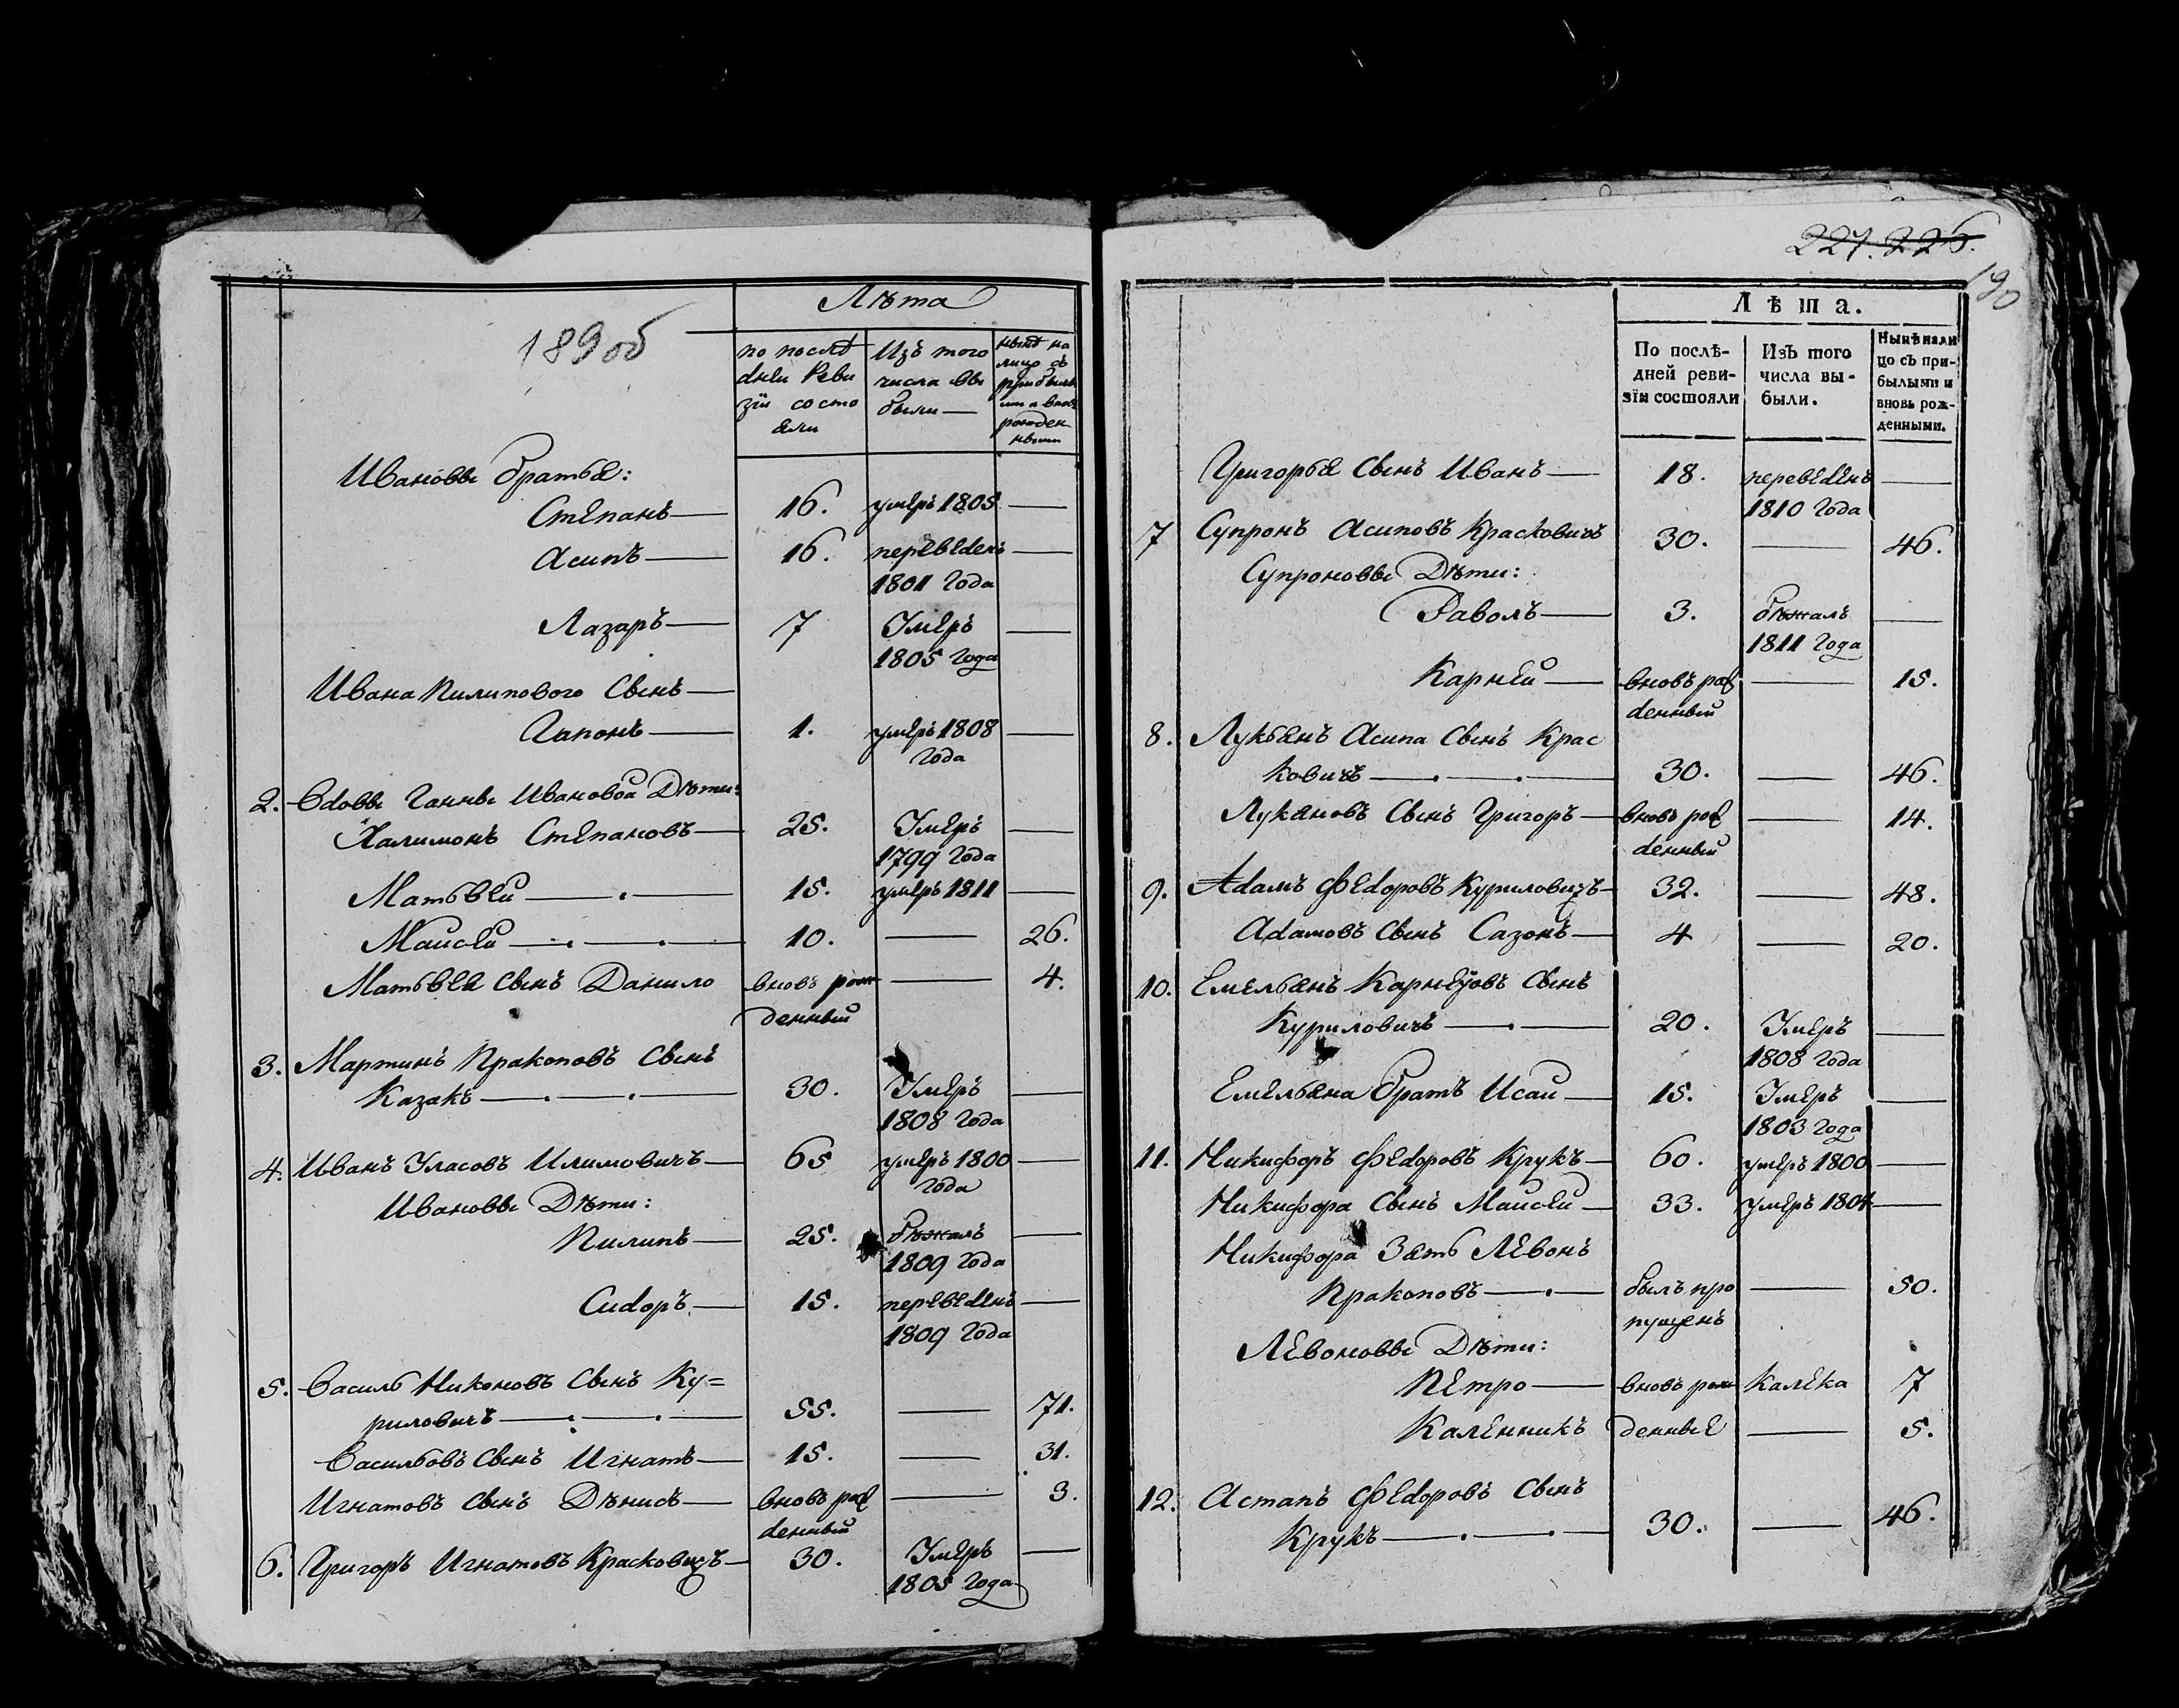 189об
Лѣта
по послѣ
дней Реви
зіи состо
яли
Изъ того
числа вы
были
нынѣ на
лицо съ
прибылы
ми и вновь
рожден
ными
Ивановы братья:
Степанъ 16. умеръ 1805
Асипъ 16. переведенъ
1801 года
Лазаръ 7 Умеръ
1805 года
Ивана Пилипового Сынъ
Гапонъ 1. умеръ 1808
года
2. Вдовы Ганны Ивановой Дѣти:
Халимонъ Степановъ 25. Умеръ
1799 года
Матьвей 15. умеръ 1811
Маисей 10. 26.
Матьвея Сынъ Данило вновь рож 4.
денный
3. Мартинъ Пракоповъ Сынъ
Казакъ 30. Умеръ
1808 года
4. Иванъ Уласовъ Илимовичъ 65 умеръ 1800
года
Ивановы Дѣти:
Пилипъ 25. бѣжалъ
1809 года
Сидоръ 15. переведенъ
1809 года
5. Василь Никоновъ Сынъ Ку=
риловичъ 55. 71.
Васильовъ Сынъ Игнатъ 15. 31.
Игнатовъ Сынъ Дѣнисъ вновь рож 3.
денный
6. Григоръ Игнатовъ Красковичъ 30. Умеръ
1805 года
227. 226.
190
Лѣта.
По послѣ-
дней реви-
зіи состояли
Изъ того
числа вы-
были.
Нынѣ нали
цо съ при-
былыми и
вновь рож-
денными.
Григорья Сынъ Иванъ 18. переведенъ
1810 года
7 Супронъ Асиповъ Красковичъ 30. 46.
Супроновы Дѣти:
Паволъ 3. бѣжалъ
1811 года
Карнѣй вновь рож 15.
денный
8. Лукьянъ Асипа Сынъ Крас
ковичъ 30. 46.
Лукяновъ Сынъ Григоръ вновь рож 14.
денный
9. Адамъ Федоровъ Куриловичъ 32. 48.
Адамовъ Сынъ Сазонъ 4 20.
10. Емельянъ Карнеуовъ Сынъ
Куриловичъ 20. Умеръ
1808 года
Емельяна братъ Исай 15. Умеръ
1803 года
11. Никифоръ Федоровъ Крукъ 60. умеръ 1800
Никифора Сынъ Маисей 33. умеръ 1804
Никифора Зять Левонъ
Пракоповъ былъ про 50.
пущенъ
Левоновы Дѣти:
Петро вновь рож Калека 7
Каленникъ денные 5.
12. Астапъ Федоровъ Сынъ
Крукъ 30. 46.